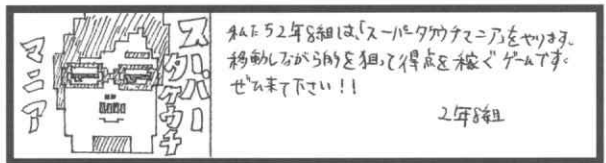 スーパー
タケウチ
マニア
私たち2年8組は、「スーパータケウチマニア」をやります。
移動しながら的を狙って得点を稼ぐゲームです。
ぜひ来て下さい!!
2年8組